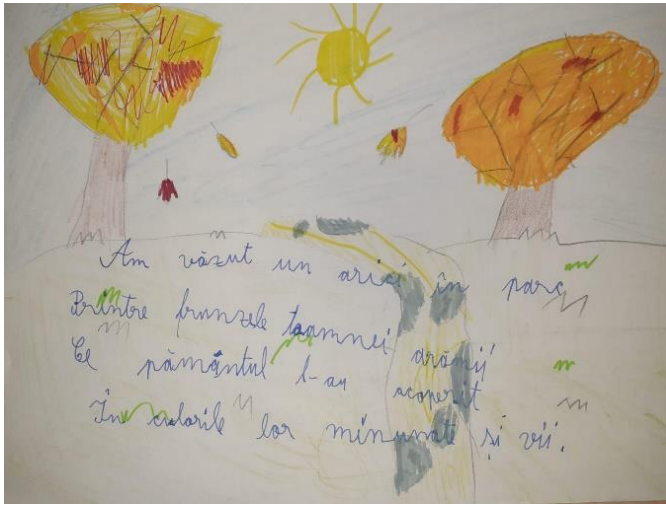 Am văzut un arici în parc
Printre frunzele toamnei arămii
Ce pământul l-au acoperit
În culorile lor minunate și vii.